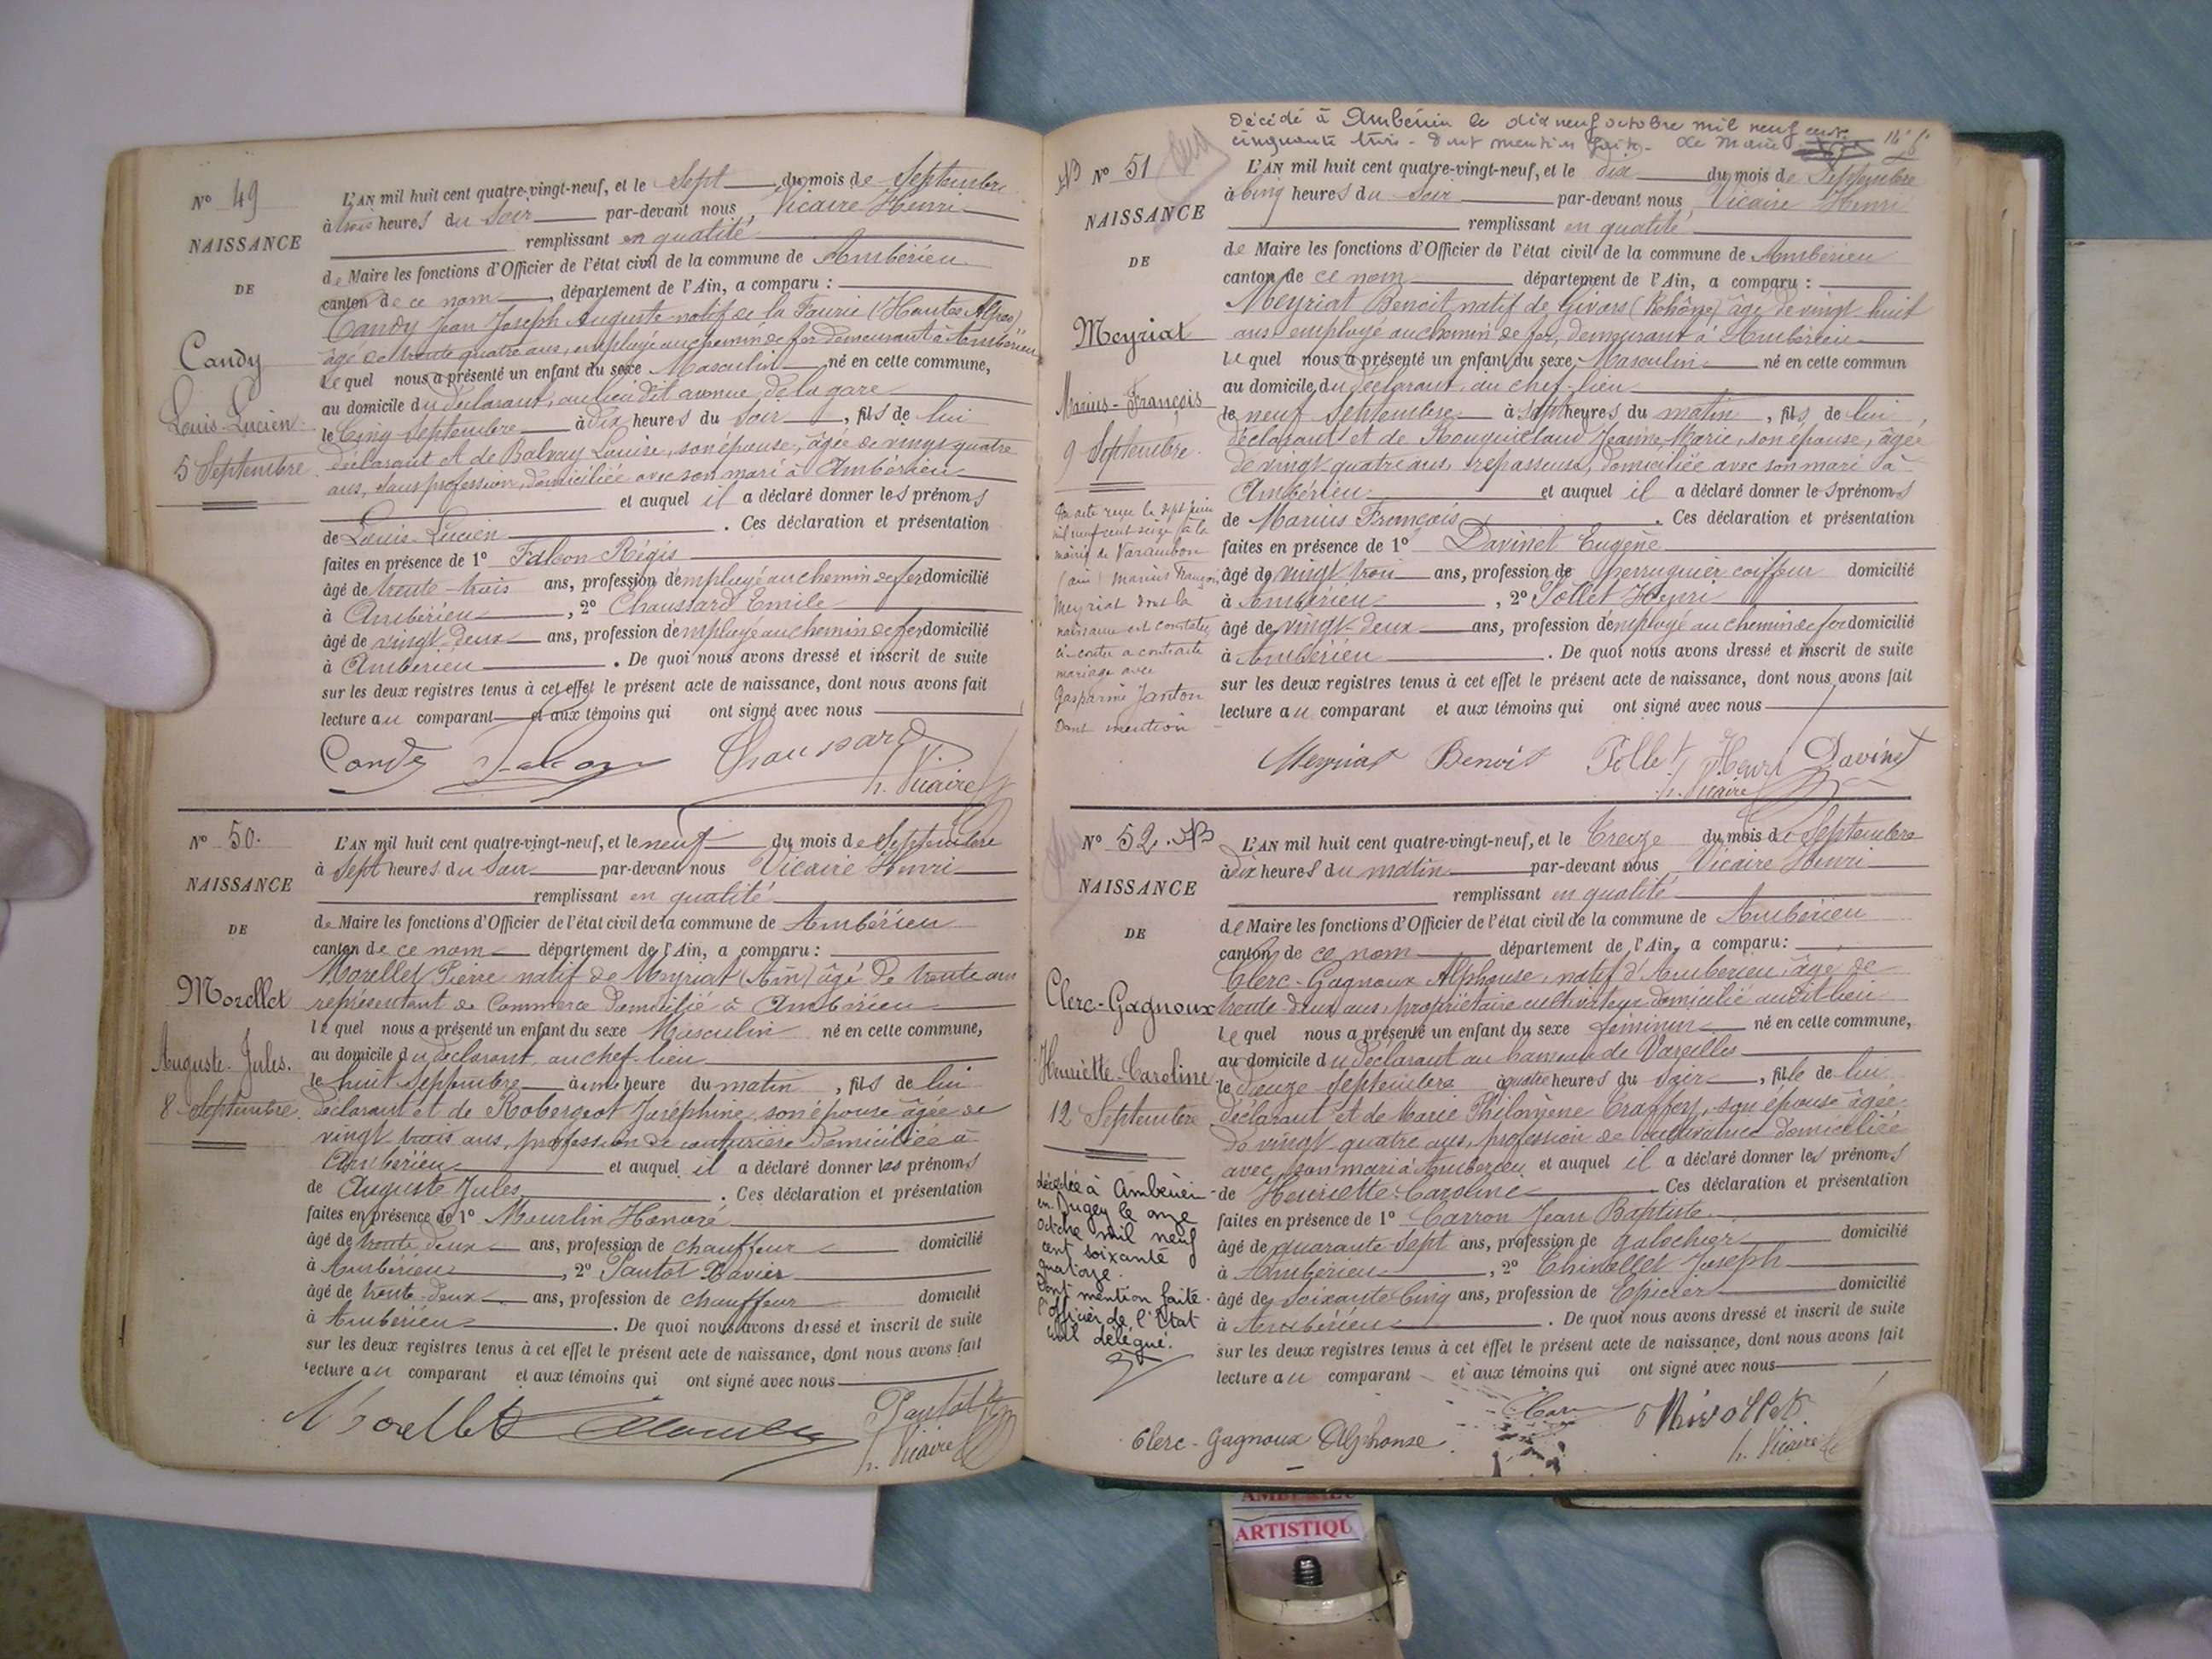 Nº 49
NAISSANCE
DE
Candy
Louis-Lucien
5 Septembre
L'AN mil huit cent quatre-vingt-neuf, et le Sept du mois de Septembre
à trois heures du Soir par-devant nous, Vicaire Henri
remplissant en qualité
de Maire les fonctions d'Officier de l'état civil de la commune de Ambérieu
canton de ce nom, département de l'Ain, a comparu :
Candy Jean Joseph Auguste natif de la Faurie (Hautes Alpes)
âgé de trente quatre ans, employé au chemin de fer demeurant à Ambérieu
Lequel nous a présenté un enfant du sexe Masculin né en cette commune,
au domicile du déclarant, au lieu dit avenue de la gare
le Cinq septembre à dix heures du Soir, fils de lui
déclarant et de Balvay Louise, son épouse, âgée de vingt quatre
ans, sans profession, domiciliée avec son mari à Ambérieu
et auquel il a déclaré donner les prénoms
de Louis Lucien. Ces déclaration et présentation
faites en présence de 1º Falcon Régis
âgé de trente-trois ans, profession d'employé au chemin de fer domicilié
à Ambérieu, 2º Chaussard Emile
âgé de vingt deux ans, profession d'employé au chemin de fer domicilié
à Ambérieu. De quoi nous avons dressé et inscrit de suite
sur les deux registres tenus à cet effet le présent acte de naissance, dont nous avons fait
lecture au comparant et aux témoins qui ont signé avec nous
Candy Falcon Chaussard
h. Vicaire
Nº 50.
NAISSANCE
DE
Morellet
Auguste-Jules.
8 Septembre
L'AN mil huit cent quatre-vingt-neuf, et le neuf du mois de Septembre
à Sept heures du Soir par-devant nous Vicaire Henri
remplissant en qualité
de Maire les fonctions d'Officier de l'état civil de la commune de Ambérieu
canton de ce nom département de l'Ain, a comparu :
Morellet Pierre natif de Meyriat (Ain) âgé de trente ans
représentant de Commerce domicilié à Ambérieu
lequel nous a présenté un enfant du sexe Masculin né en cette commune,
au domicile du déclarant, au chef-lieu
le huit Septembre à une heure du matin, fils de lui
déclarant et de Robergeot Joséphine, son épouse âgée de
vingt trois ans, profession de couturière domiciliée à
Ambérieu et auquel il a déclaré donner les prénoms
de Auguste Jules. Ces déclaration et présentation
faites en présence de 1º Meurlin Honoré
âgé de trente deux ans, profession de chauffeur domicilié
à Ambérieu, 2º Pautot Xavier
âgé de trente-deux ans, profession de chauffeur domicilié
à Ambérieu. De quoi nous avons dressé et inscrit de suite
sur les deux registres tenus à cet effet le présent acte de naissance, dont nous avons fait
lecture au comparant et aux témoins qui ont signé avec nous
Morellet Pautot
h. Vicaire
Décédé à Ambérieu le dix neuf octobre mil neuf cent
cinquante trois - dont mention faite - Le Maire
Nº 51
NAISSANCE
DE
Meyriat
Marius-François
9 Septembre
Par acte reçu le sept juin
mil neuf cent seize à la
mairie de Varambon
(ain) Marius François
Meyriat dont la
naissance est constatée
ci-contre a contracté
mariage avec
Gasparine Janton
Dont mention
L'AN mil huit cent quatre-vingt-neuf, et le dix du mois de Septembre
à Cinq heures du Soir par-devant nous Vicaire Henri
remplissant en qualité
de Maire les fonctions d'Officier de l'état civil de la commune de Ambérieu
canton de ce nom département de l'Ain, a comparu :
Meyriat Benoit natif de Givors (Rohône) âgé de vingt huit
ans employé au chemin de fer, demeurant à Ambérieu
Lequel nous a présenté un enfant du sexe Masculin né en cette commun
au domicile du déclarant, au chef-lieu
le neuf Septembre à Sept heures du matin, fils de lui
déclarant et de Jeanne Marie, son épouse, âgée
de vingt quatre ans, repasseuse, domiciliée avec son mari à
Ambérieu et auquel il a déclaré donner les prénoms
de Marius François. Ces déclaration et présentation
faites en présence de 1º Davinet Eugène
âgé de vingt trois ans, profession de perruquier coiffeur domicilié
à Ambérieu, 2º Tollet Henri
âgé de vingt-deux ans, profession d'employé au chemin de fer domicilié
à Ambérieu. De quoi nous avons dressé et inscrit de suite
sur les deux registres tenus à cet effet le présent acte de naissance, dont nous avons fait
lecture au comparant et aux témoins qui ont signé avec nous
Meyriat Benoit Tollet Henri Davinet
h. Vicaire
Nº 52.
NAISSANCE
DE
Clerc-Gagnoux
Henriette-Caroline
12 Septembre
décédée à Ambérieu-
en-Bugey le onze
octobre mil neuf
cent soixante
quatorze.
Dont mention faite.
l'officier de l'Etat
civil délégué.
L'AN mil huit cent quatre-vingt-neuf, et le Treize du mois de Septembre
à dix heures du matin par-devant nous Vicaire Henri
remplissant en qualité
de Maire les fonctions d'Officier de l'état civil de la commune de Ambérieu
canton de ce nom, département de l'Ain, a comparu :
Clerc-Gagnoux Alphonse, natif d'Ambérieu, âgé de
trente-deux ans, propriétaire cultivateur domicilié audit lieu
Lequel nous a présenté un enfant du sexe féminin né en cette commune,
au domicile du déclarant au hameau de Vareilles
le douze Septembre à quatre heures du Soir, fille de lui
déclarant et de Marie Philomène, son épouse âgée
de vingt quatre ans, profession de cultivatrice domiciliée
avec son mari à Ambérieu et auquel il a déclaré donner les prénoms
de Henriette-Caroline. Ces déclaration et présentation
faites en présence de 1º Carron Jean Baptiste
âgé de quarante-sept ans, profession de galochier domicilié
à Ambérieu, 2º Joseph
âgé de soixante-cinq ans, profession de Epicier domicilié
à Ambérieu. De quoi nous avons dressé et inscrit de suite
sur les deux registres tenus à cet effet le présent acte de naissance, dont nous avons fait
lecture au comparant et aux témoins qui ont signé avec nous
Clerc-Gagnoux Alphonse
h. Vicaire
ARTISTIQU